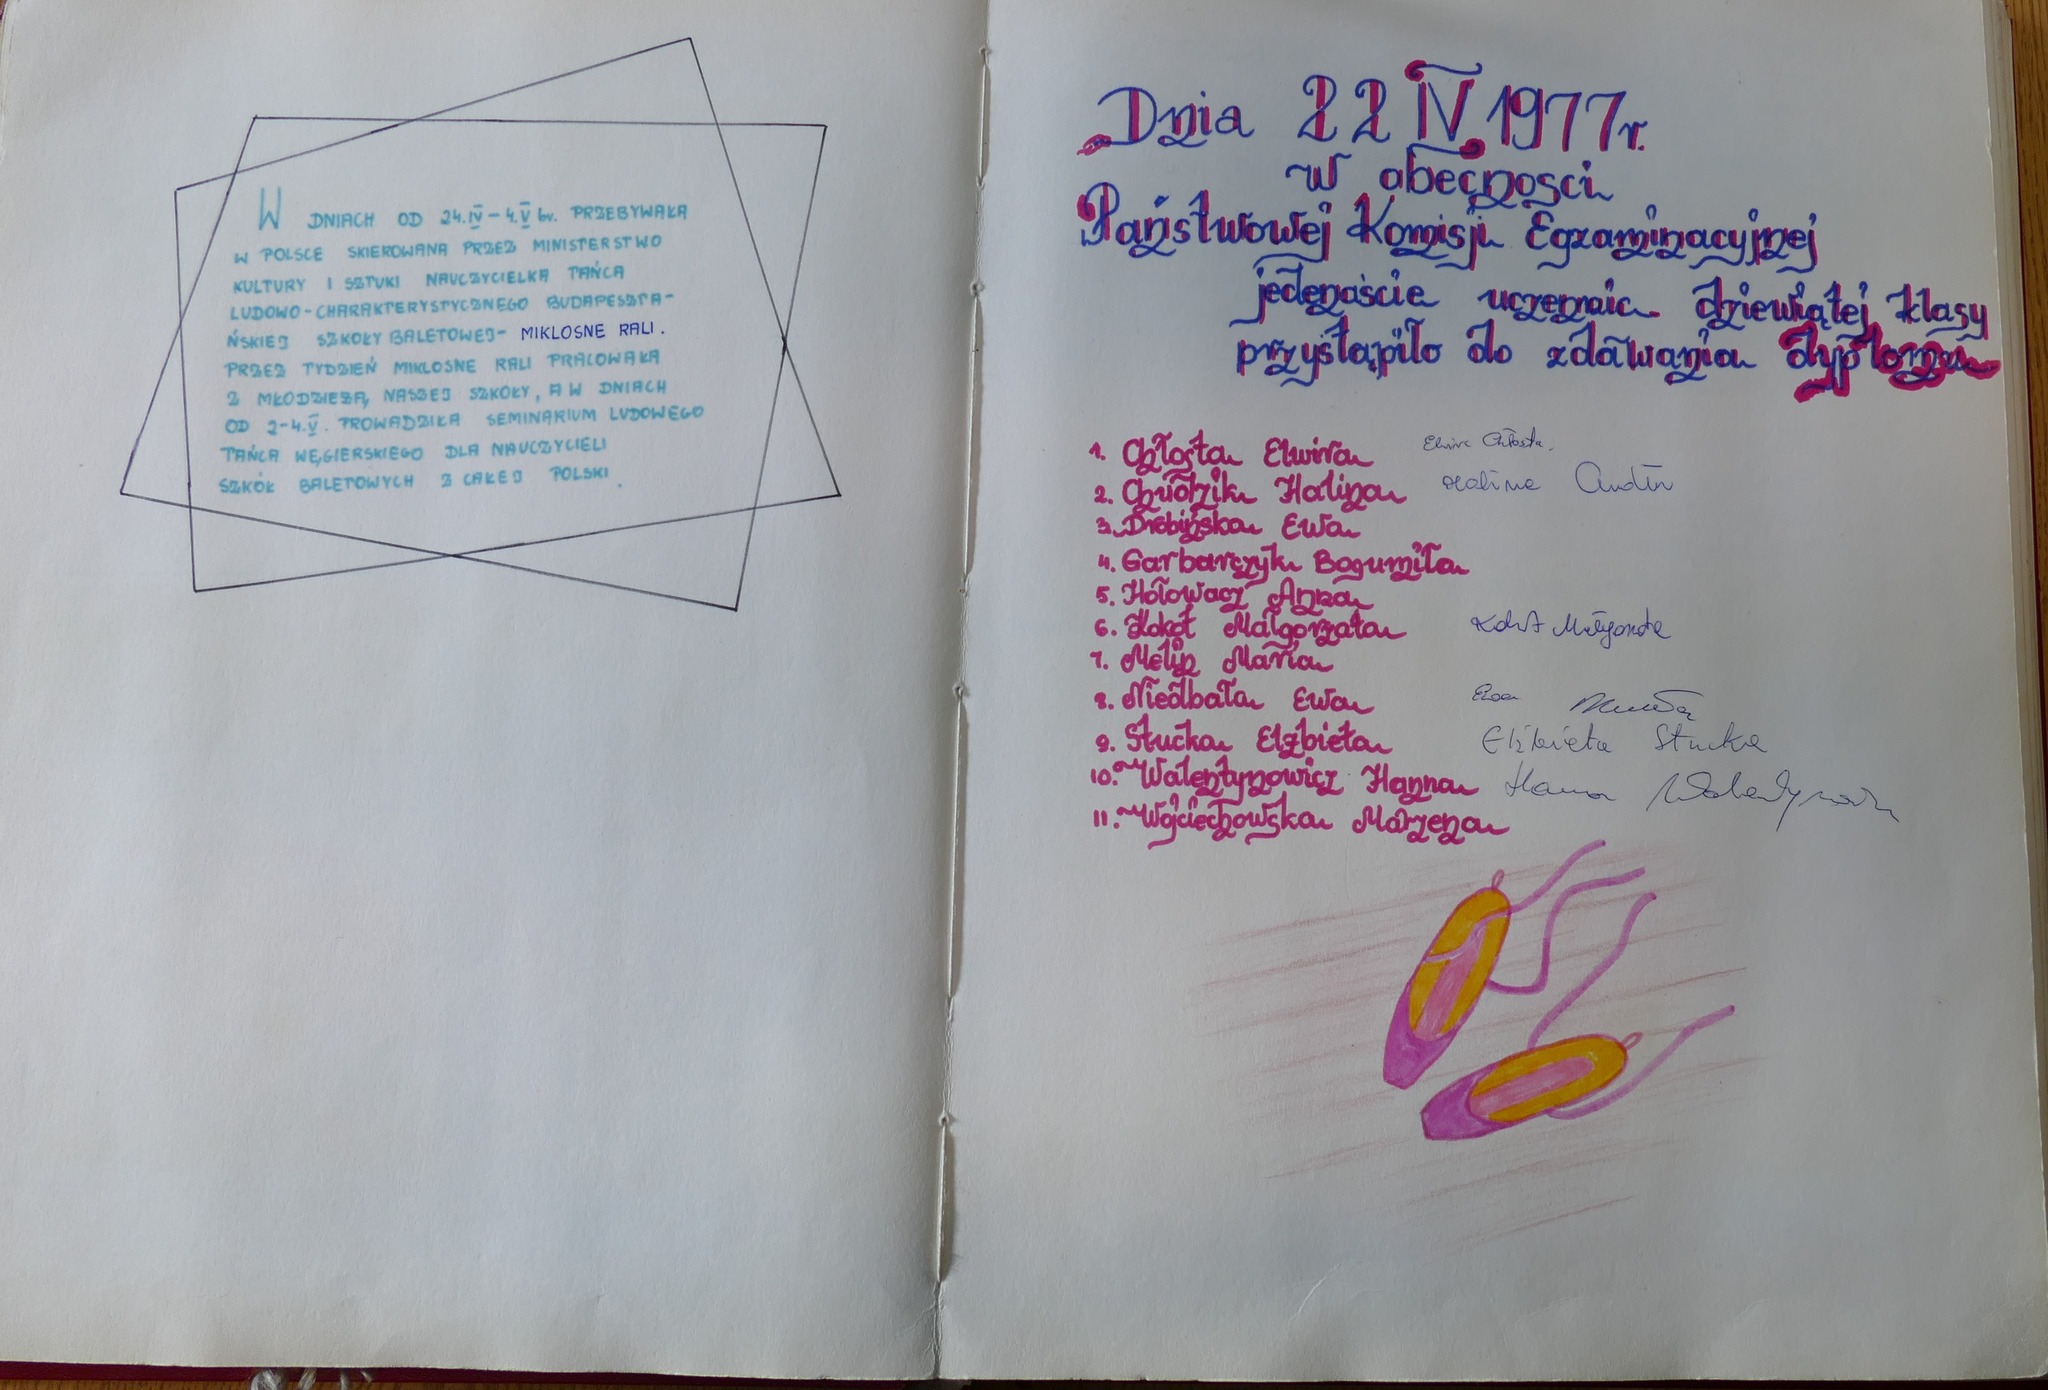 W DNIACH OD 24.IV – 4.V br. PRZEBYWAŁA
W POLSCE SKIEROWANA PRZEZ MINISTERSTWO
KULTURY I SZTUKI NAUCZYCIELKA TAŃCA
LUDOWO-CHARAKTERYSTYCZNEGO BUDAPESZTA-
ŃSKIEJ SZKOŁY BALETOWEJ- MIKLOSNE RALI.
PRZEZ TYDZIEŃ MIKLOSNE RALI PRACOWAŁA
Z MŁODZIEŻĄ NASZEJ SZKOŁY, A W DNIACH
OD 2-4.V. PROWADZIŁA SEMINARIUM LUDOWEGO
TAŃCA WĘGIERSKIEGO DLA NAUCZYCIELI
SZKÓŁ BALETOWYCH Z CAŁEJ POLSKI.
Dnia 22 IV 1977r.
w obecności
Państwowej Komisji Egzaminacyjnej
jedenaście uczennic dziewiątej klasy
przystąpiło do zdawania dyplomu
1. Chłosta Elwira Elwira Chłosta.
2. Chudzik Halina Halina
3. Drobińska Ewa
4. Garbarczyk Bogumiła
5. Hołowacz Anna
6. Kokot Małgorzata Kokot Małgorzata
7. Melin Maria
8. Niedbała Ewa Ewa
9. Stucka Elżbieta Elżbieta Stucka
10. Walentynowicz Hanna Hanna Walentynowicz
11. Wojciechowska Marzena